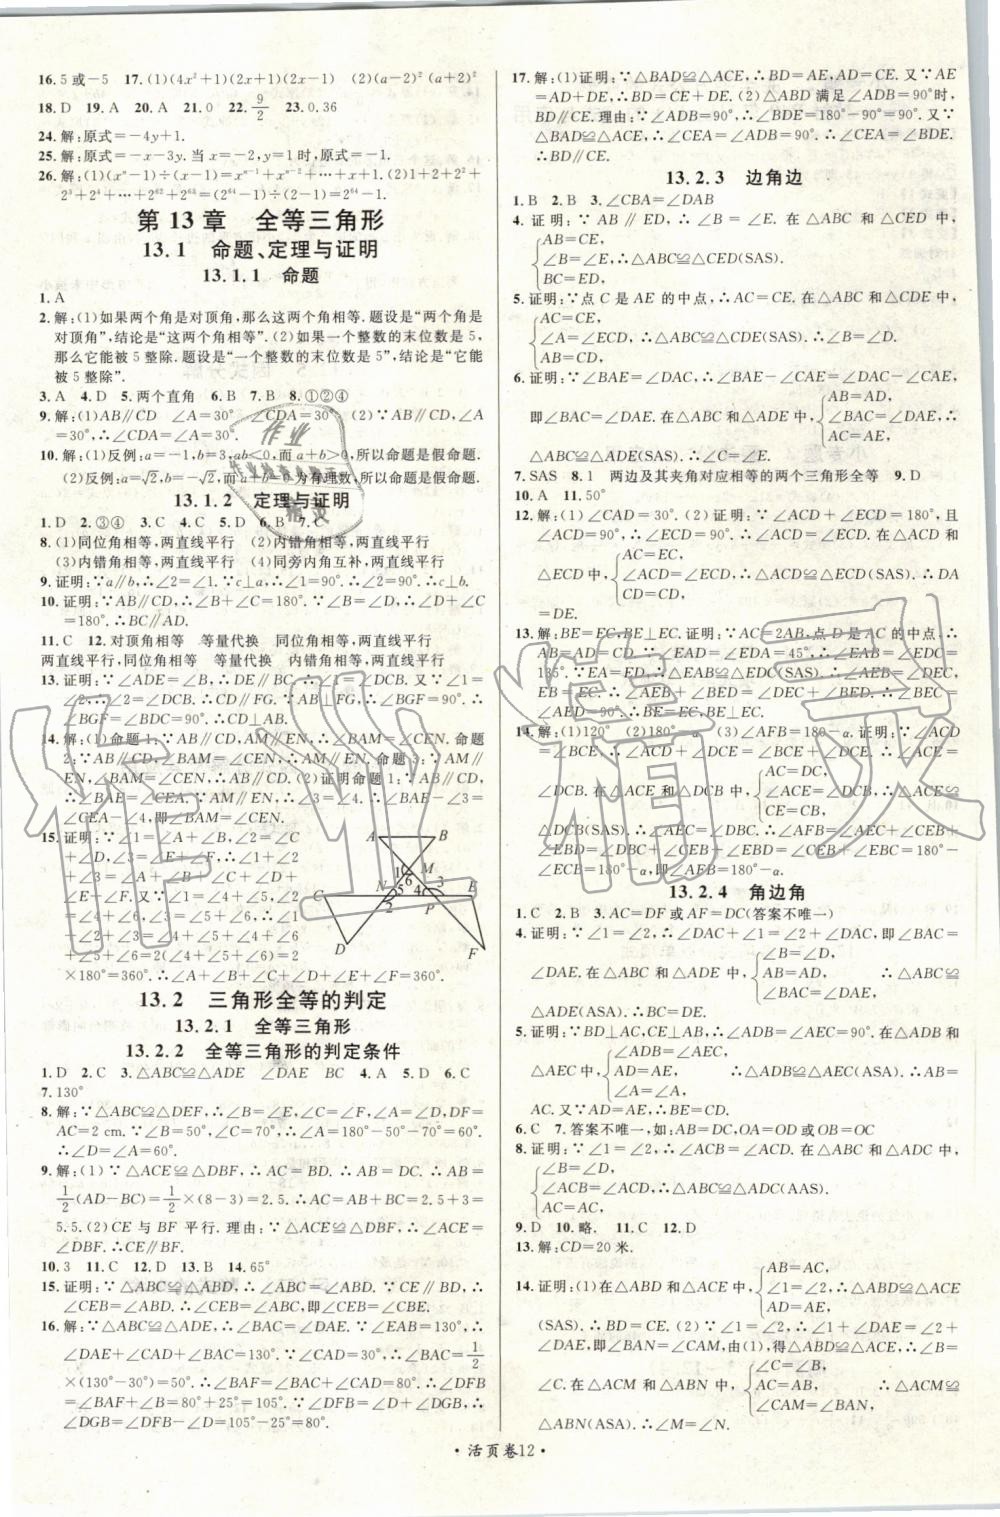 16.5或-5　17.(1)(4x²+1)(2x+1)(2x-1)　(2)(a-2)²(a+2)²
18.D　19.A　20.A　21.0　22.9/2　23.0.36
24.解:原式=-4y+1.
25.解:原式=-x-3y.当x=-2,y=1时,原式=-1.
26.解:(1)(xⁿ-1)÷(x-1)=xⁿ⁻¹+xⁿ⁻²+…+x+1.(2)1+2+2²+
2³+2⁴+…+2⁶²+2⁶³=(2⁶⁴-1)÷(2-1)=2⁶⁴-1.
第13章　全等三角形
13.1　命题、定理与证明
13.1.1　命题
1.A
2.解:(1)如果两个角是对顶角,那么这两个角相等.题设是“两个角是
对顶角”,结论是“这两个角相等”.(2)如果一个整数的末位数是5,
那么它能被5整除.题设是“一个整数的末位数是5”,结论是“它能
被5整除”.
3.A　4.D　5.两个直角　6.B　7.B　8.①②④
9.解:(1)AB∥CD　∠A=30°　∠CDA=30°　(2)∵AB∥CD,∠A
=30°,∴∠CDA=∠A=30°.
10.解:(1)反例:a=-1,b=3,ab<0,而a+b>0,所以命题是假命题.
(2)反例:a=√2,b=-√2,而a+b=0为有理数,所以命题是假命题.
13.1.2　定理与证明
1.D　2.③④　3.C　4.C　5.D　6.B　7.C
8.(1)同位角相等,两直线平行　(2)内错角相等,两直线平行
(3)内错角相等,两直线平行　(4)同旁内角互补,两直线平行
9.证明:∵a∥b,∴∠2=∠1.∵c⊥a,∴∠1=90°.∴∠2=90°.∴c⊥b.
10.证明:∵AB∥CD,∴∠B+∠C=180°.∵∠B=∠D,∴∠D+∠C
=180°.∴BC∥AD.
11.C　12.对顶角相等　等量代换　同位角相等,两直线平行
两直线平行,同位角相等　等量代换　内错角相等,两直线平行
13.证明:∵∠ADE=∠B,∴DE∥BC.∴∠1=∠DCB.又∵∠1=
∠2,∴∠2=∠DCB.∴CD∥FG.∵AB⊥FG,∴∠BGF=90°.∴
∠BGF=∠BDC=90°.∴CD⊥AB.
14.解:(1)命题1:∵AB∥CD,AM∥EN,∴∠BAM=∠CEN.命题
2:∵AB∥CD,∠BAM=∠CEN,∴AM∥EN.命题3:∵AM∥
EN,∠BAM=∠CEN,∴AB∥CD.(2)证明命题1:∵AB∥CD,
∴∠BAE=∠CEA.∵AM∥EN,∴∠3=∠4.∴∠BAE-∠3=
∠CEA-∠4,即∠BAM=∠CEN.
15.证明:∵∠1=∠A+∠B,∠2=∠C
+∠D,∠3=∠E+∠F,∴∠1+∠2
+∠3=∠A+∠B+∠C+∠D+
∠E+∠F.∵∠1=∠4+∠5,∠2=
∠4+∠6,∠3=∠5+∠6,∴∠1
+∠2+∠3=∠4+∠5+∠4+∠6
+∠5+∠6=2(∠4+∠5+∠6)=2
×180°=360°.∴∠A+∠B+∠C+∠D+∠E+∠F=360°.
A B M 1 6 N 5 4 3 C E 2 P D F
13.2　三角形全等的判定
13.2.1　全等三角形
13.2.2　全等三角形的判定条件
1.D　2.C　3.△ABC≌△ADE　∠DAE　BC　4.A　5.D　6.C
7.130°
8.解:∵△ABC≌△DEF,∴∠B=∠E,∠C=∠F,∠A=∠D,DF=
AC=2 cm.∵∠B=50°,∠C=70°,∴∠A=180°-50°-70°=60°.
∴∠D=∠A=60°.
9.解:(1)∵△ACE≌△DBF,∴AC=BD.∴AB=DC.∴AB=
1/2(AD-BC)=1/2×(8-3)=2.5.∴AC=AB+BC=2.5+3=
5.5.(2)CE与BF平行.理由:∵△ACE≌△DBF,∴∠ACE=
∠DBF.∴CE∥BF.
10.3　11.C　12.D　13.B　14.65°
15.证明:∵△ABC≌△ABD,∴∠ABC=∠ABD.∵CE∥BD,∴
∠CEB=∠ABD.∴∠CEB=∠ABC,即∠CEB=∠CBE.
16.解:∵△ABC≌△ADE,∴∠BAC=∠DAE.∵∠EAB=130°,∴
∠DAE+∠CAD+∠BAC=130°.∵∠CAD=30°,∴∠BAC=1/2
×(130°-30°)=50°.∴∠BAF=∠BAC+∠CAD=80°.∴∠DFB
=∠BAF+∠B=80°+25°=105°.∵∠DFB=∠D+∠DGB,∴
∠DGB=∠DFB-∠D=105°-25°=80°.
17.解:(1)证明:∵△BAD≌△ACE,∴BD=AE,AD=CE.又∵AE
=AD+DE,∴BD=CE+DE.(2)△ABD满足∠ADB=90°时,
BD∥CE.理由:∵∠ADB=90°,∴∠BDE=180°-90°=90°.又∵
△BAD≌△ACE,∴∠CEA=∠ADB=90°.∴∠CEA=∠BDE.
∴BD∥CE.
13.2.3　边角边
1.B　2.B　3.∠CBA=∠DAB
4.证明:∵AB∥ED,∴∠B=∠E.在△ABC和△CED中,
AB=CE,
∠B=∠E,∴△ABC≌△CED(SAS).
BC=ED,
5.证明:∵点C是AE的中点,∴AC=CE.在△ABC和△CDE中,
AC=CE,
∠A=∠ECD,∴△ABC≌△CDE(SAS).∴∠B=∠D.
AB=CD,
6.证明:∵∠BAE=∠DAC,∴∠BAE-∠CAE=∠DAC-∠CAE,
AB=AD,
即∠BAC=∠DAE.在△ABC和△ADE中,∠BAC=∠DAE,∴
AC=AE,
△ABC≌△ADE(SAS).
7.SAS　8.1　两边及其夹角对应相等的两个三角形全等　9.D
10.A　11.50°
12.解:(1)∠CAD=30°.(2)证明:∵∠ACD+∠ECD=180°,且
∠ACD=90°,∴∠ECD=∠ACD=90°.在△ACD和
AC=EC,
△ECD中,∠ACD=∠ECD,∴△ACD≌△ECD(SAS).∴DA
CD=CD,
=DE.
13.解:BE=EC,BE⊥EC.证明:∵AC=2AB,点D是AC的中点,∴
AB=AD=CD.∵∠EAD=∠EDA=45°,∴∠EAB=∠EDC=
135°.∵EA=ED,∴△EAB≌△EDC(SAS).∴∠AEB=∠DEC,
EB=EC.∴∠AEB+∠BED=∠DEC+∠BED.∴∠BEC=
∠AED=90°.∴BE=EC,BE⊥EC.
14.解:(1)120°　(2)180°-α　(3)∠AFB=180°-α.证明:∵∠ACD
=∠BCE,∴∠ACD+∠DCE=∠BCE+∠DCE,∴∠ACE=
AC=DC,
∠DCB.在△ACE和△DCB中,∠ACE=∠DCB,∴△ACE≌
CE=CB,
△DCB(SAS).∴∠AEC=∠DBC.∴∠AFB=∠AEC+∠CEB+
∠EBD=∠DBC+∠CEB+∠EBD=∠CEB+∠EBC=180°-
∠ECB=180°-α,即∠AFB=180°-α.
13.2.4　角边角
1.C　2.B　3.AC=DF或AF=DC(答案不唯一)
4.证明:∵∠1=∠2,∴∠DAC+∠1=∠2+∠DAC,即∠BAC=
∠B=∠D,
∠DAE.在△BAC和△DAE中,AB=AD,　∴△ABC≌
∠BAC=∠DAE,
△ADE(ASA).∴BC=DE.
5.证明:∵BD⊥AC,CE⊥AB,∴∠ADB=∠AEC=90°.在△ADB和
∠ADB=∠AEC,
△AEC中,AD=AE,　∴△ADB≌△AEC(ASA).∴AB=
∠A=∠A,
AC.又∵AD=AE,∴BE=CD.
6.C　7.答案不唯一,如:AB=DC,OA=OD或OB=OC
8.证明:∵∠1=∠2,∴∠ACB=∠ACD.在△ABC和△ADC中,
∠B=∠D,
∠ACB=∠ACD,∴△ABC≌△ADC(AAS).
AC=AC,
9.D　10.略.　11.C　12.D
13.解:CD=20米.
AB=AC,
14.证明:(1)在△ABD和△ACE中,∠1=∠2,∴△ABD≌△ACE
AD=AE,
(SAS).∴BD=CE.(2)∵∠1=∠2,∴∠1+∠DAE=∠2+
∠DAE,即∠BAN=∠CAM,由(1),得△ABD≌△ACE,∴∠B=
∠C=∠B,
∠C.在△ACM和△ABN中,AC=AB,　∴△ACM≌
∠CAM=∠BAN,
△ABN(ASA).∴∠M=∠N.
·活页卷12·
作业精灵